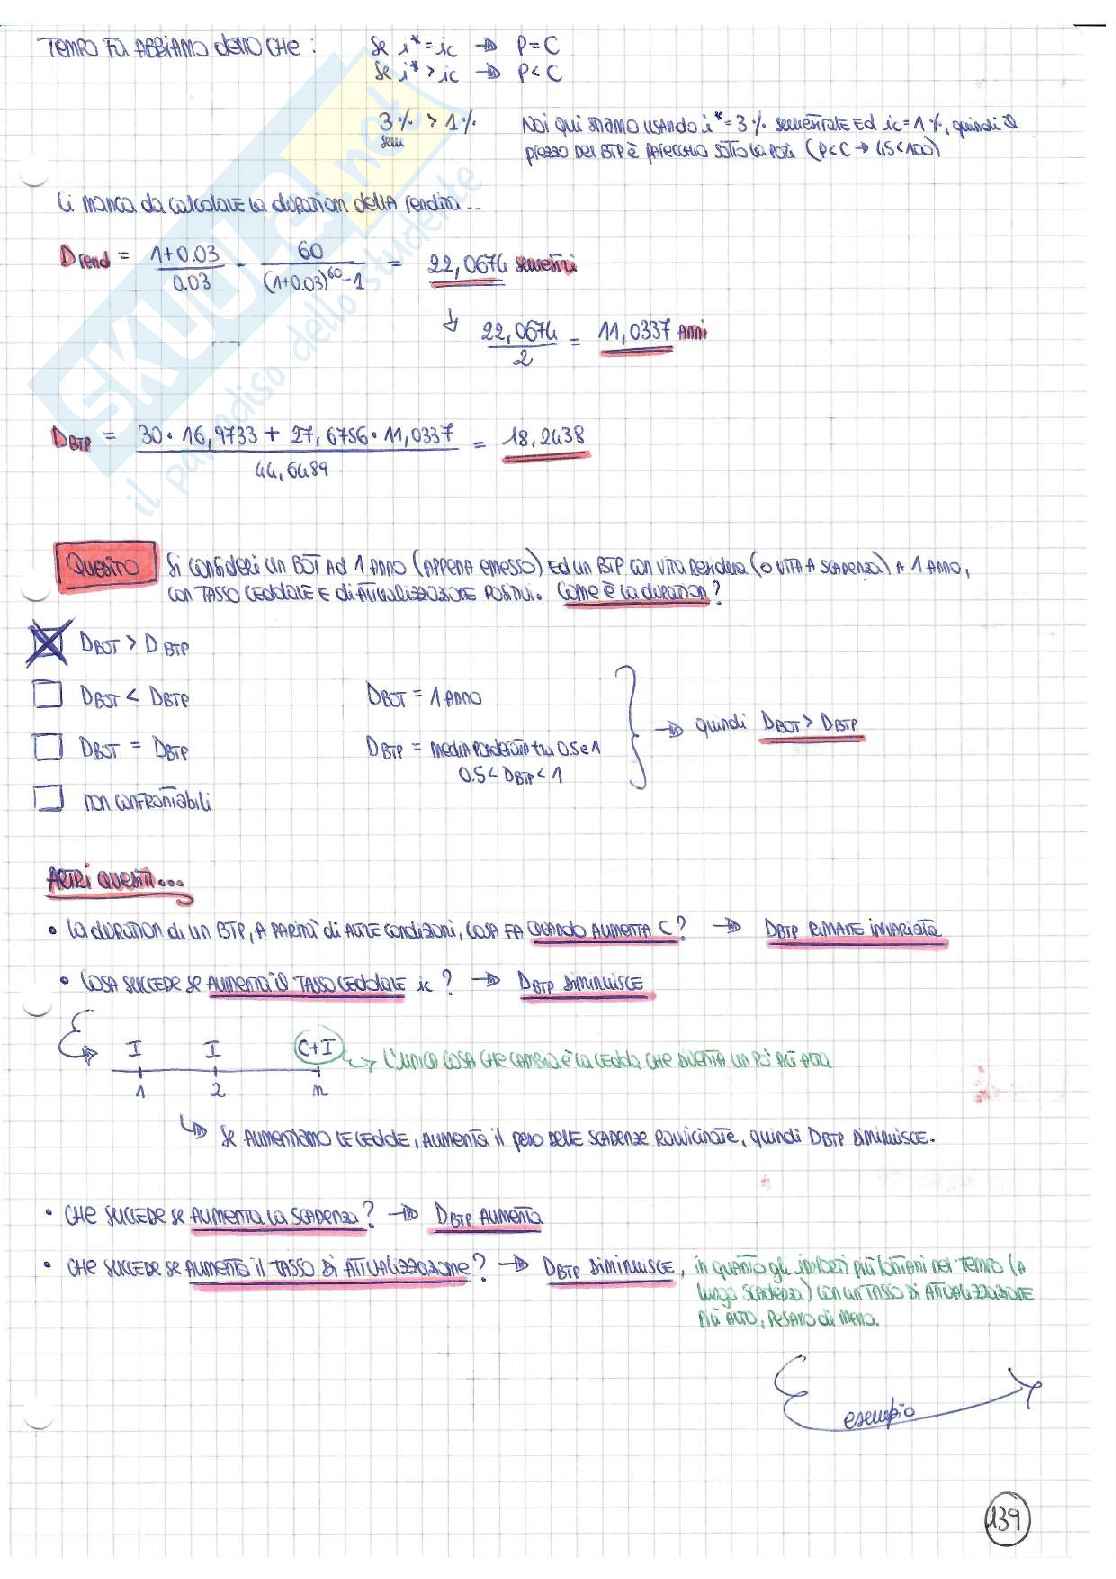 TEMPO FA ABBIAMO detto CHE : Se i* = ic → P = C
Se i* > ic → P < C
3% > 1% Noi qui stiamo usando i* = 3% semestrale ED ic = 1%, quindi il
sem prezzo del BTP è parecchio sotto la pari (P < C → 45 < 100)
Ci manca da calcolare la duration della rendita...
Drend = 1+0.03 / 0.03 - 60 / (1+0.03)^60 - 1 = 22,0674 semestri
↓ 22,0674 / 2 = 11,0337 Anni
DBTP = 30 · 16,9733 + 27,6756 · 11,0337 / 44,6489 = 18,2438
SKUOLA.net
il paradiso dello studente
Quesito Si consideri un BOT ad 1 anno (appena emesso) ed un BTP con vita residua (o vita a scadenza) a 1 anno,
con tasso cedolare e di attualizzazione positivi. Come è la duration?
DBOT > DBTP
DBOT < DBTP DBOT = 1 ANNO
DBOT = DBTP DBTP = media ponderata tra 0.5 e 1 → quindi DBOT > DBTP
0.5 < DBTP < 1
non confrontabili
Altri quesiti...
• La duration di un BTP, a parità di altre condizioni, cosa fa quando aumenta C? → DBTP rimane invariata
• Cosa succede se aumenta il tasso cedolare ic? → DBTP diminuisce
I I C+I → L'unica cosa che cambia è la cedola che diventa un pò più alta
1 2 n
↳ Se aumentano le cedole, aumenta il peso delle scadenze ravvicinate, quindi DBTP diminuisce.
• Che succede se aumenta la scadenza? → DBTP aumenta
• Che succede se aumenta il tasso di attualizzazione? → DBTP diminuisce, in quanto gli importi più lontani nel tempo (a
lunga scadenza) con un tasso di attualizzazione
più alto, pesano di meno.
esempio
139